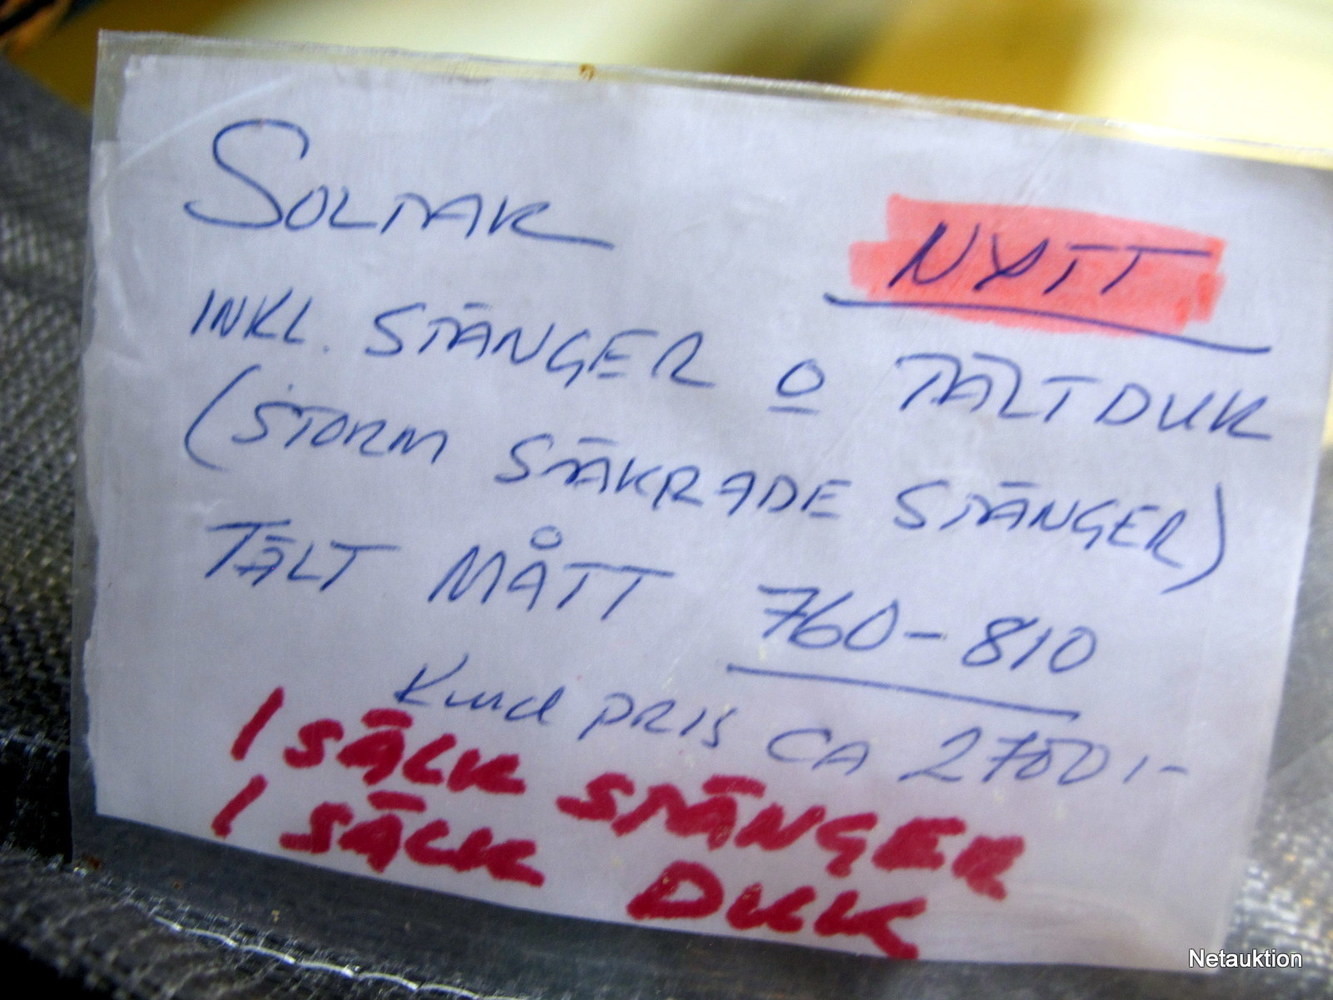 SOLTAK
NYTT
INKL. STÄNGER o TÄLTDUK
(STORM SÄKRADE STÄNGER)
TÄLT MÅTT 760-810
Kund PRIS CA 2700:-
1 SÄCK STÄNGER
1 SÄCK DUK
Netauktion